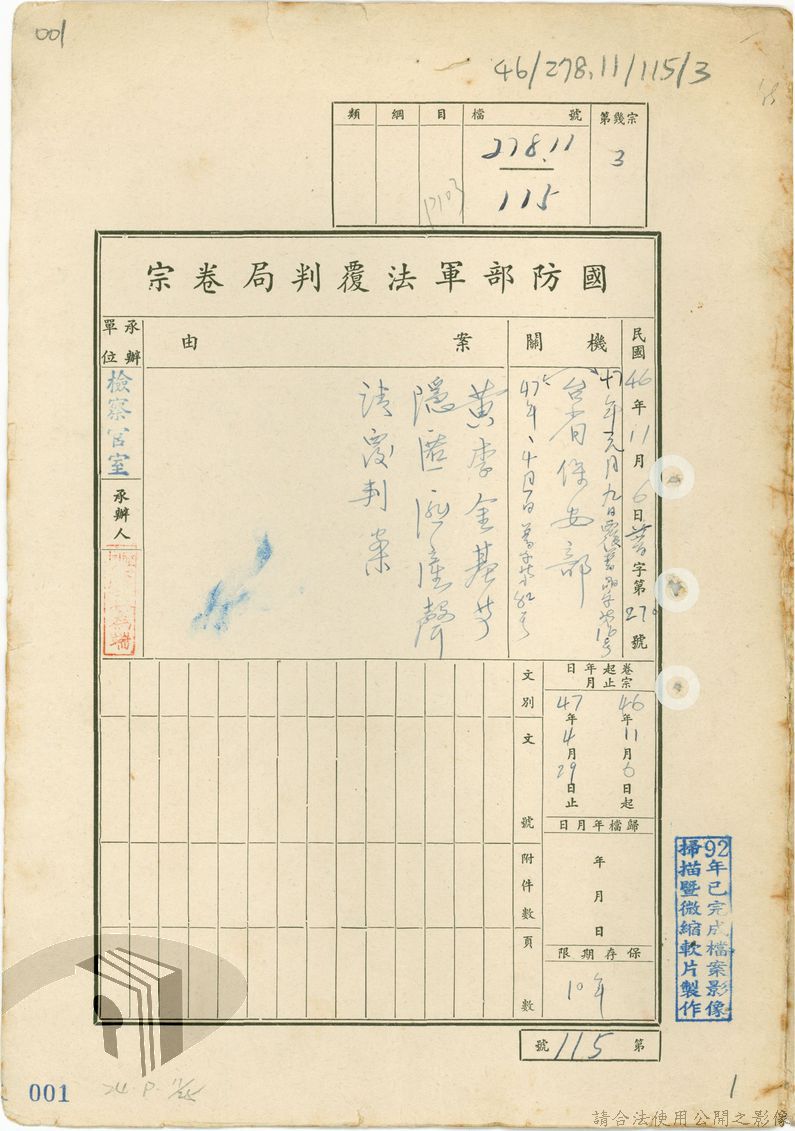 001
46/278.11/115/3
類 綱 目 檔號 第幾宗
278.11
115
3
國防部軍法覆判局卷宗
民國46年11月6日普字第27號
機關
台省保安部
案由
黃李金基等
隱匿匪產聲
請覆判案
承辦單位
檢察官室
承辦人
卷宗起止年月日
46年11月6日起
47年4月29日止
歸檔年月日
年
月
日
保存期限
10年
文別
文號
附件數
頁數
第115號
92年已完成檔案影像
掃描暨微縮軟片製作
001
1
請合法使用公開之影像